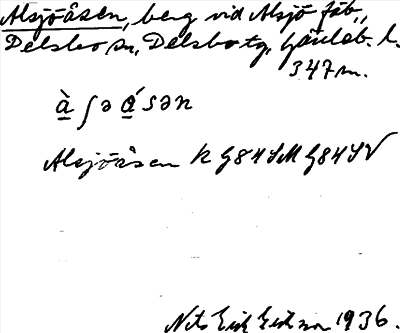 Alsjöåsen, berg vid Alsjö fäb.,
Delsbo sn, Delsbo tg, Gävleb. l.
347 m.
à̱ ʃə á̱sən
Alsjöåsen K G84SM G84SV
Nils Erik Eriksson 1936.